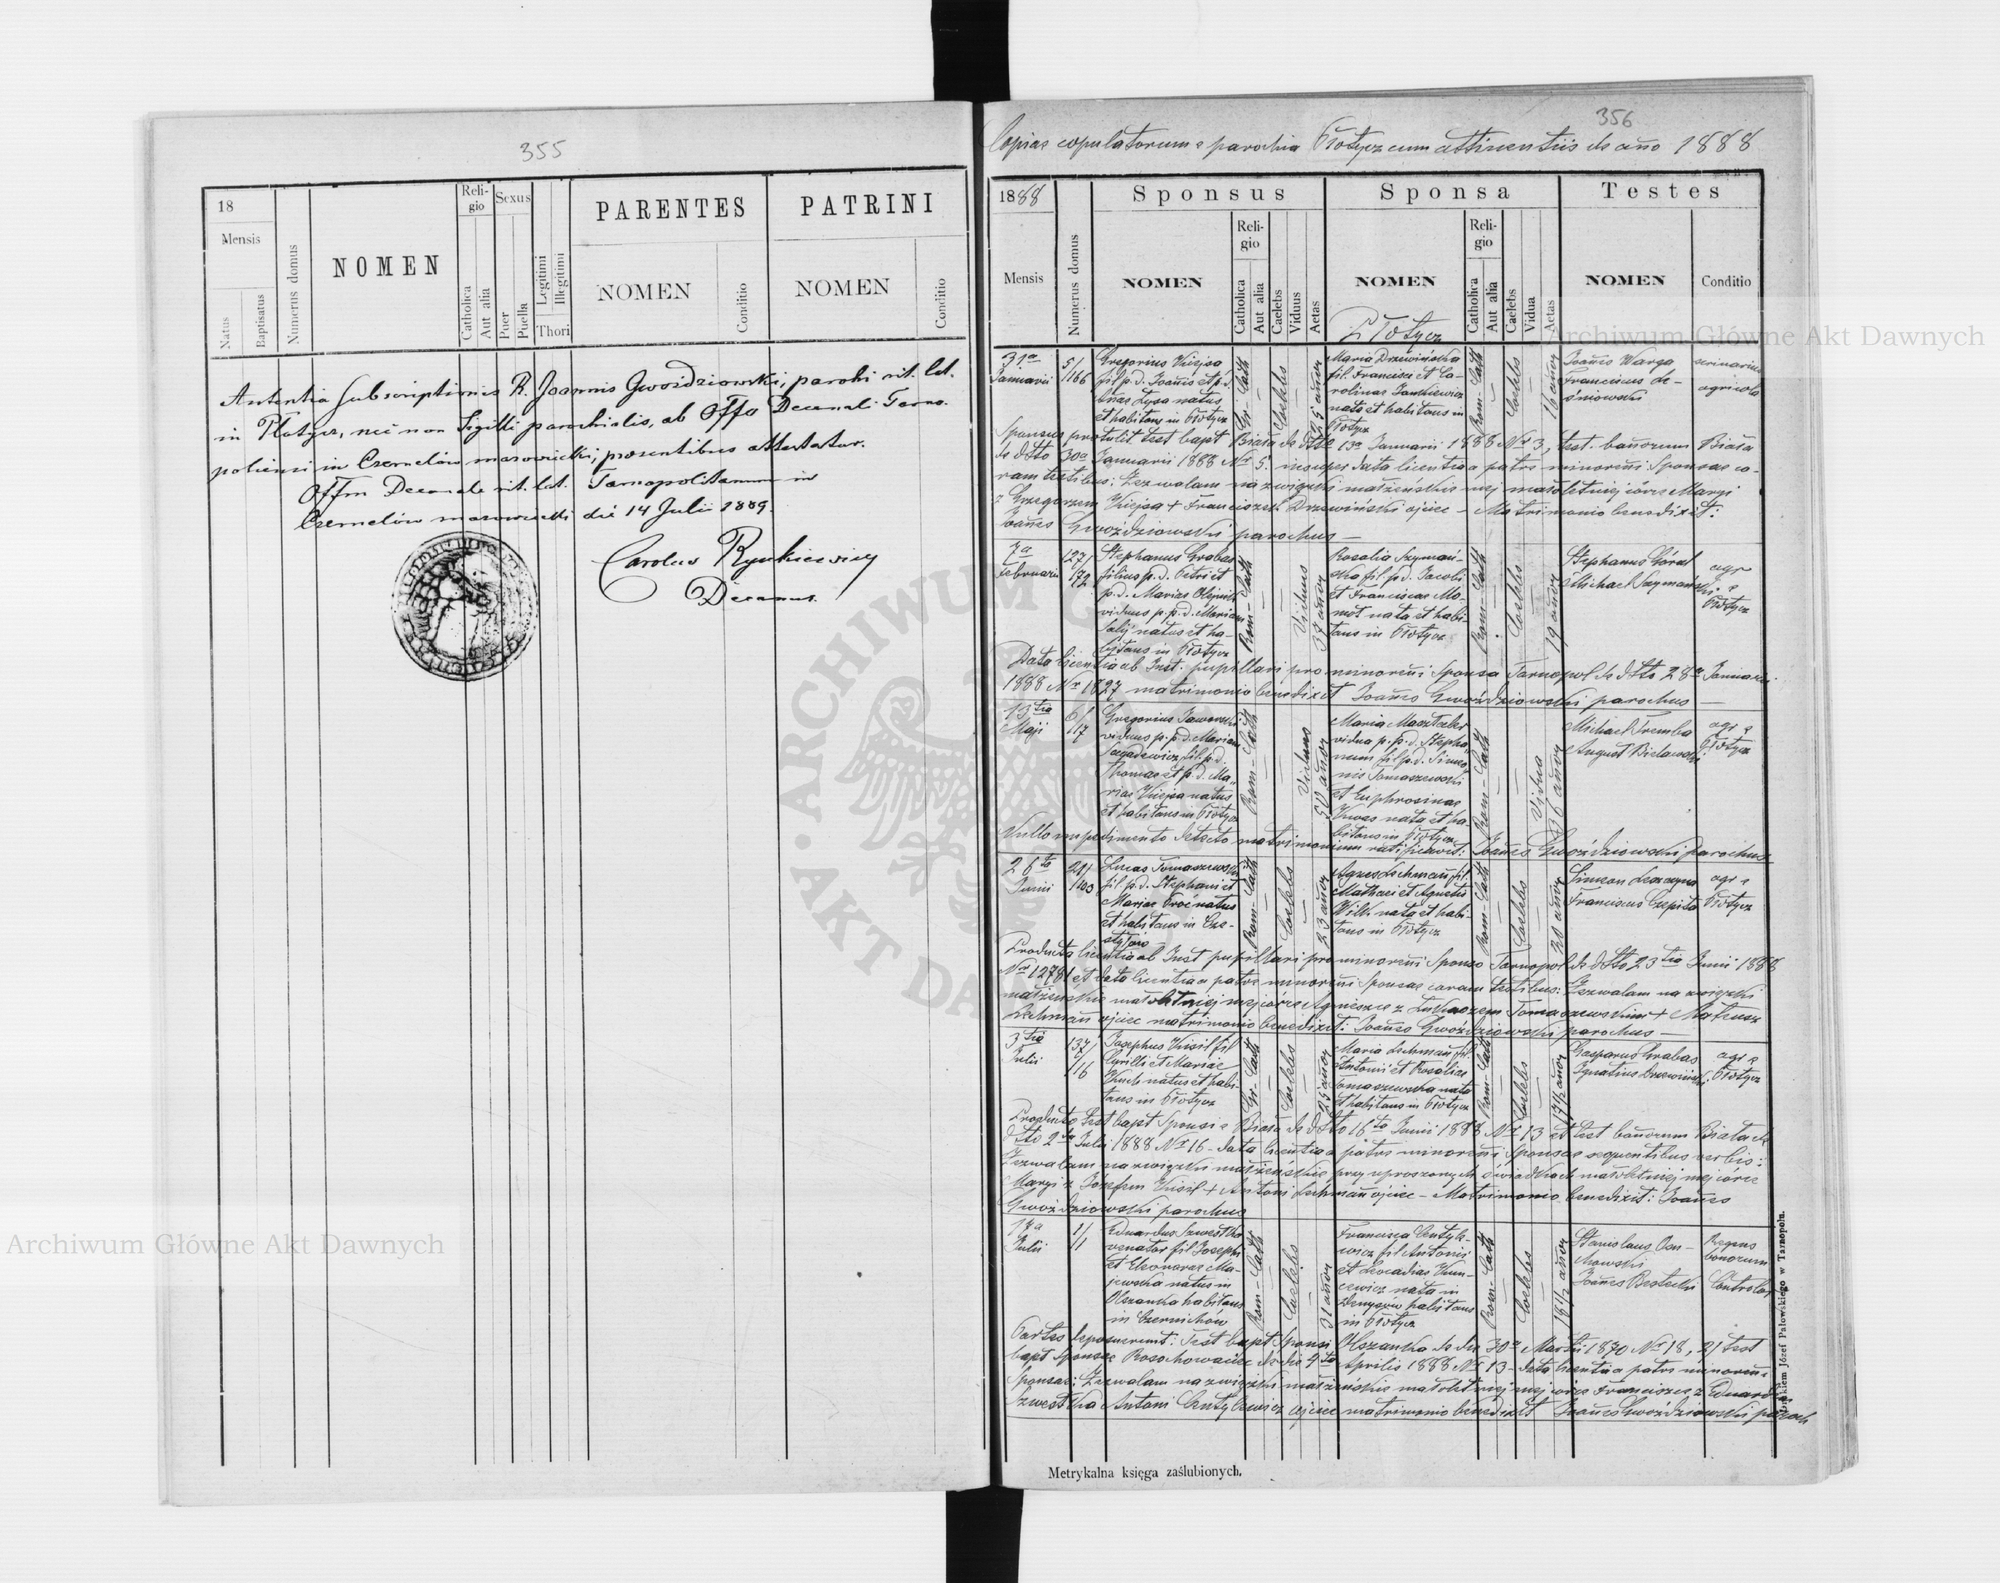 355
18
Mensis
Natus
Baptisatus
Numerus domus
NOMEN
Reli-
gio
Catholica
Aut alia
Sexus
Puer
Puella
Legitimi
Illegitimi
Thori
PARENTES
NOMEN
Conditio
PATRINI
NOMEN
Conditio
Autentia subscriptionis R. Joannis Gwoździowski, parochi rit. lat.
in Płotycz, nec non Sigilli parochialis, ab Offo Decanali Tarno-
poliensi in Czernelów mazowiecki, praesentibus attestatur.
Offm Decanale rit. lat. Tarnopolitanum in
Czernelów mazowiecki die 14 Julii 1889.
Carolus Rynkiewicz
Decanus.
356
Copiae copulatorum e parochia Płotycz cum attinentiis de año 1888
1888
Mensis
Numerus domus
Sponsus
NOMEN
Reli-
gio
Catholica
Aut alia
Caelebs
Viduus
Aetas
Sponsa
NOMEN
Reli-
gio
Catholica
Aut alia
Caelebs
Vidua
Aetas
Testes
NOMEN
Conditio
Płotycz
31a
Januarii
5/
166
Gregorius Kiejsa
fil. p. d. Joañis et p. d.
natus
et habitans in Płotycz
Gr-Cath
Coelebs
Maria Drzewińska
fil. Francisci et Ca-
rolinae Jankiewicz
nata et habitans in
Płotycz
Rom-Cath
Coelebs
16 años
Joañes Warga
Franciscus Le-
śniowski
agricola
Sponsus protulit test bapt Biała de dtto 13a Januarii 1888 Nr 3, test. bañorum Biała
de dtto 30a Januarii 1888 Nr 5. insuper data licentia a patre minoreñi Sponsae co-
ram testibus: Zezwalam na związki małżeńskie mej małoletniej córce Maryi
z Grzegorzem Kiejsa + Franciszek Drzewiński ojciec - Matrimonio benedixit:
Joañes Gwoździowski parochus -
7a
Februarii
127/
172
Stephanus Grabas
filius p. d. Petri et
p. d. Mariae Olejnik
viduus p. p. d. Mariam
natus et ha-
bitans in Płotycz
Rom-Cath
Viduus
37 años
Rosalia Szymań-
ska fil. p. d. Jacobi
et Franciscae Mo-
mot nata et habi-
tans in Płotycz
Rom-Cath
Coelebs
19 años
Stephanus Góral
Michael Szymański
agr
e
Płotycz
Data licentia ab Inst. pupillari pro minoreñi Sponsa Tarnopol de dtto 28a Januarii
1888 Nr 1827 matrimonio benedixit Joañes Gwoździowski parochus -
13tia
Maji
6/
117
Gregorius Jaworski
viduus p. p. d. Mariam
fil. p. d.
Thomae et p. d. Ma-
riae Kiejsa natus
et habitans in Płotycz
Rom-Cath
Viduus
50 años
Maria Masztaler
vidua p. p. d. Stepha-
num fil. p. d. Simeo-
nis Tomaszewski
et Euphrosinae
nata et ha-
bitans in Płotycz
Rom-Cath
Vidua
36 años
Michael Trembla
August Bielawski
agr e
Płotycz
Nullo impedimento detecto matrimonium ratificavit: Joañes Gwoździowski parochus
26ta
Junii
Lucas Tomaszewski
fil. p. d. Stephani et
Mariae natus
et habitans in
Rom-Cath
Coelebs
23 años
Agnes Lehmañ fil.
Mathaei et Agnetis
Wilk nata et habi-
tans in Płotycz
Rom-Cath
Coelebs
20 años
Simeon
Franciscus Czepita
agr e
Płotycz
Producta licentia ab Inst pupillari pro minoreñi Sponso Tarnopol de dtto 23tia Junii 1888
Nr 12781 et data licentia a patre minoreñi Sponsae coram testibus: Zezwalam na związki
małżeńskie małoletniej mej córce Agnieszce z Łukaszem Tomaszewskim + Mateusz
Lehmañ ojciec matrimonio benedixit: Joañes Gwoździowski parochus -
3tia
Julii
137/
116
Josephus Kisil fil
Cyrilli et Mariae
natus et habi-
tans in Płotycz
Gr-Cath
Coelebs
25 años
Maria Lehmañ fil.
Antonii et Rosaliae
Tomaszewska nata
et habitans in Płotycz
Rom-Cath
Coelebs
17 1/2 años
Gasparus Grabas
Ignatius Drzewiński
agr e
Płotycz
Producto test bapt Sponsi e Biała de dtto 16to Junii 1888 Nr 13 et test bañorum Biała de
dtto 2da Julii 1888 Nr 16 - data licentia a patre minoreñi Sponsae sequentibus verbis:
Zezwalam na związki małżeńskie przy uproszonych świadkach małoletniej mej córce
Maryi z Jozefem Kisil + Antoni Lehmañ ojciec - Matrimonio benedixit: Joañes
Gwoździowski parochus
17a
Julii
1/
1
Eduardus Szwestka
venator fil Josephi
et Eleonorae Ma-
jewska natus in
Olszanka habitans
in Czernichów
Rom-Cath
Coelebs
31 años
Francisca Centyle-
wicz fil Antonii
et Leocadiae Kun-
cewicz nata in
Denysów habitans
in Płotycz
Rom-Cath
Coelebs
18 1/2 años
Stanislaus Osu-
chowski
Joañes Bestecki
Regens
bonorum
Controlor
Partes deposuerunt: Test bapt Sponsi Olszanka de die 30a Martii 1870 Nr 18, 2) test
bapt Sponsae Rosochowaciec de die 9ta Aprilis 1888 Nr 13 - data licentia a patre minoreñi
Sponsae: Zezwalam na związki małżeńskie małoletniej mej córce Franciszce z Eduardem
Szwestka Antoni Centylewicz ojciec matrimonio benedixit Joañes Gwoździowski paroch
Metrykalna księga zaślubionych.
Drukiem Józef Pawłowskiego w Tarnopolu.
Archiwum Główne Akt Dawnych
Archiwum Główne Akt Dawnych
ARCHIWUM GŁÓWNE AKT DAWNYCH